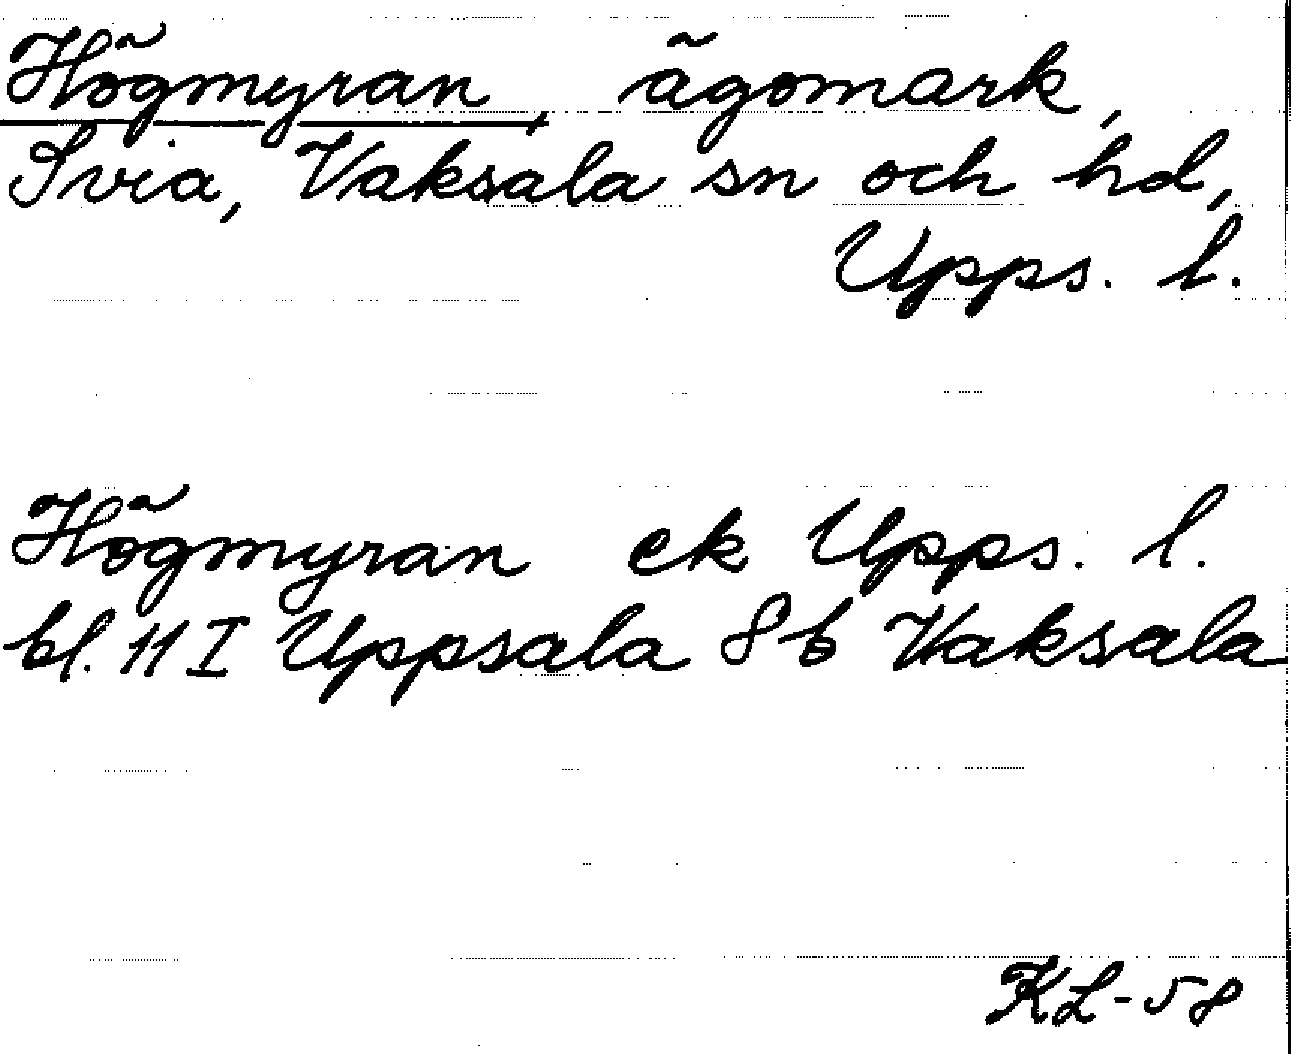 Högmyran, ägomark,
Svia, Vaksala sn och hd,
Upps. l.
Högmyran ek Upps. l.
bl. 11 I Uppsala 8 b Vaksala
KL-58